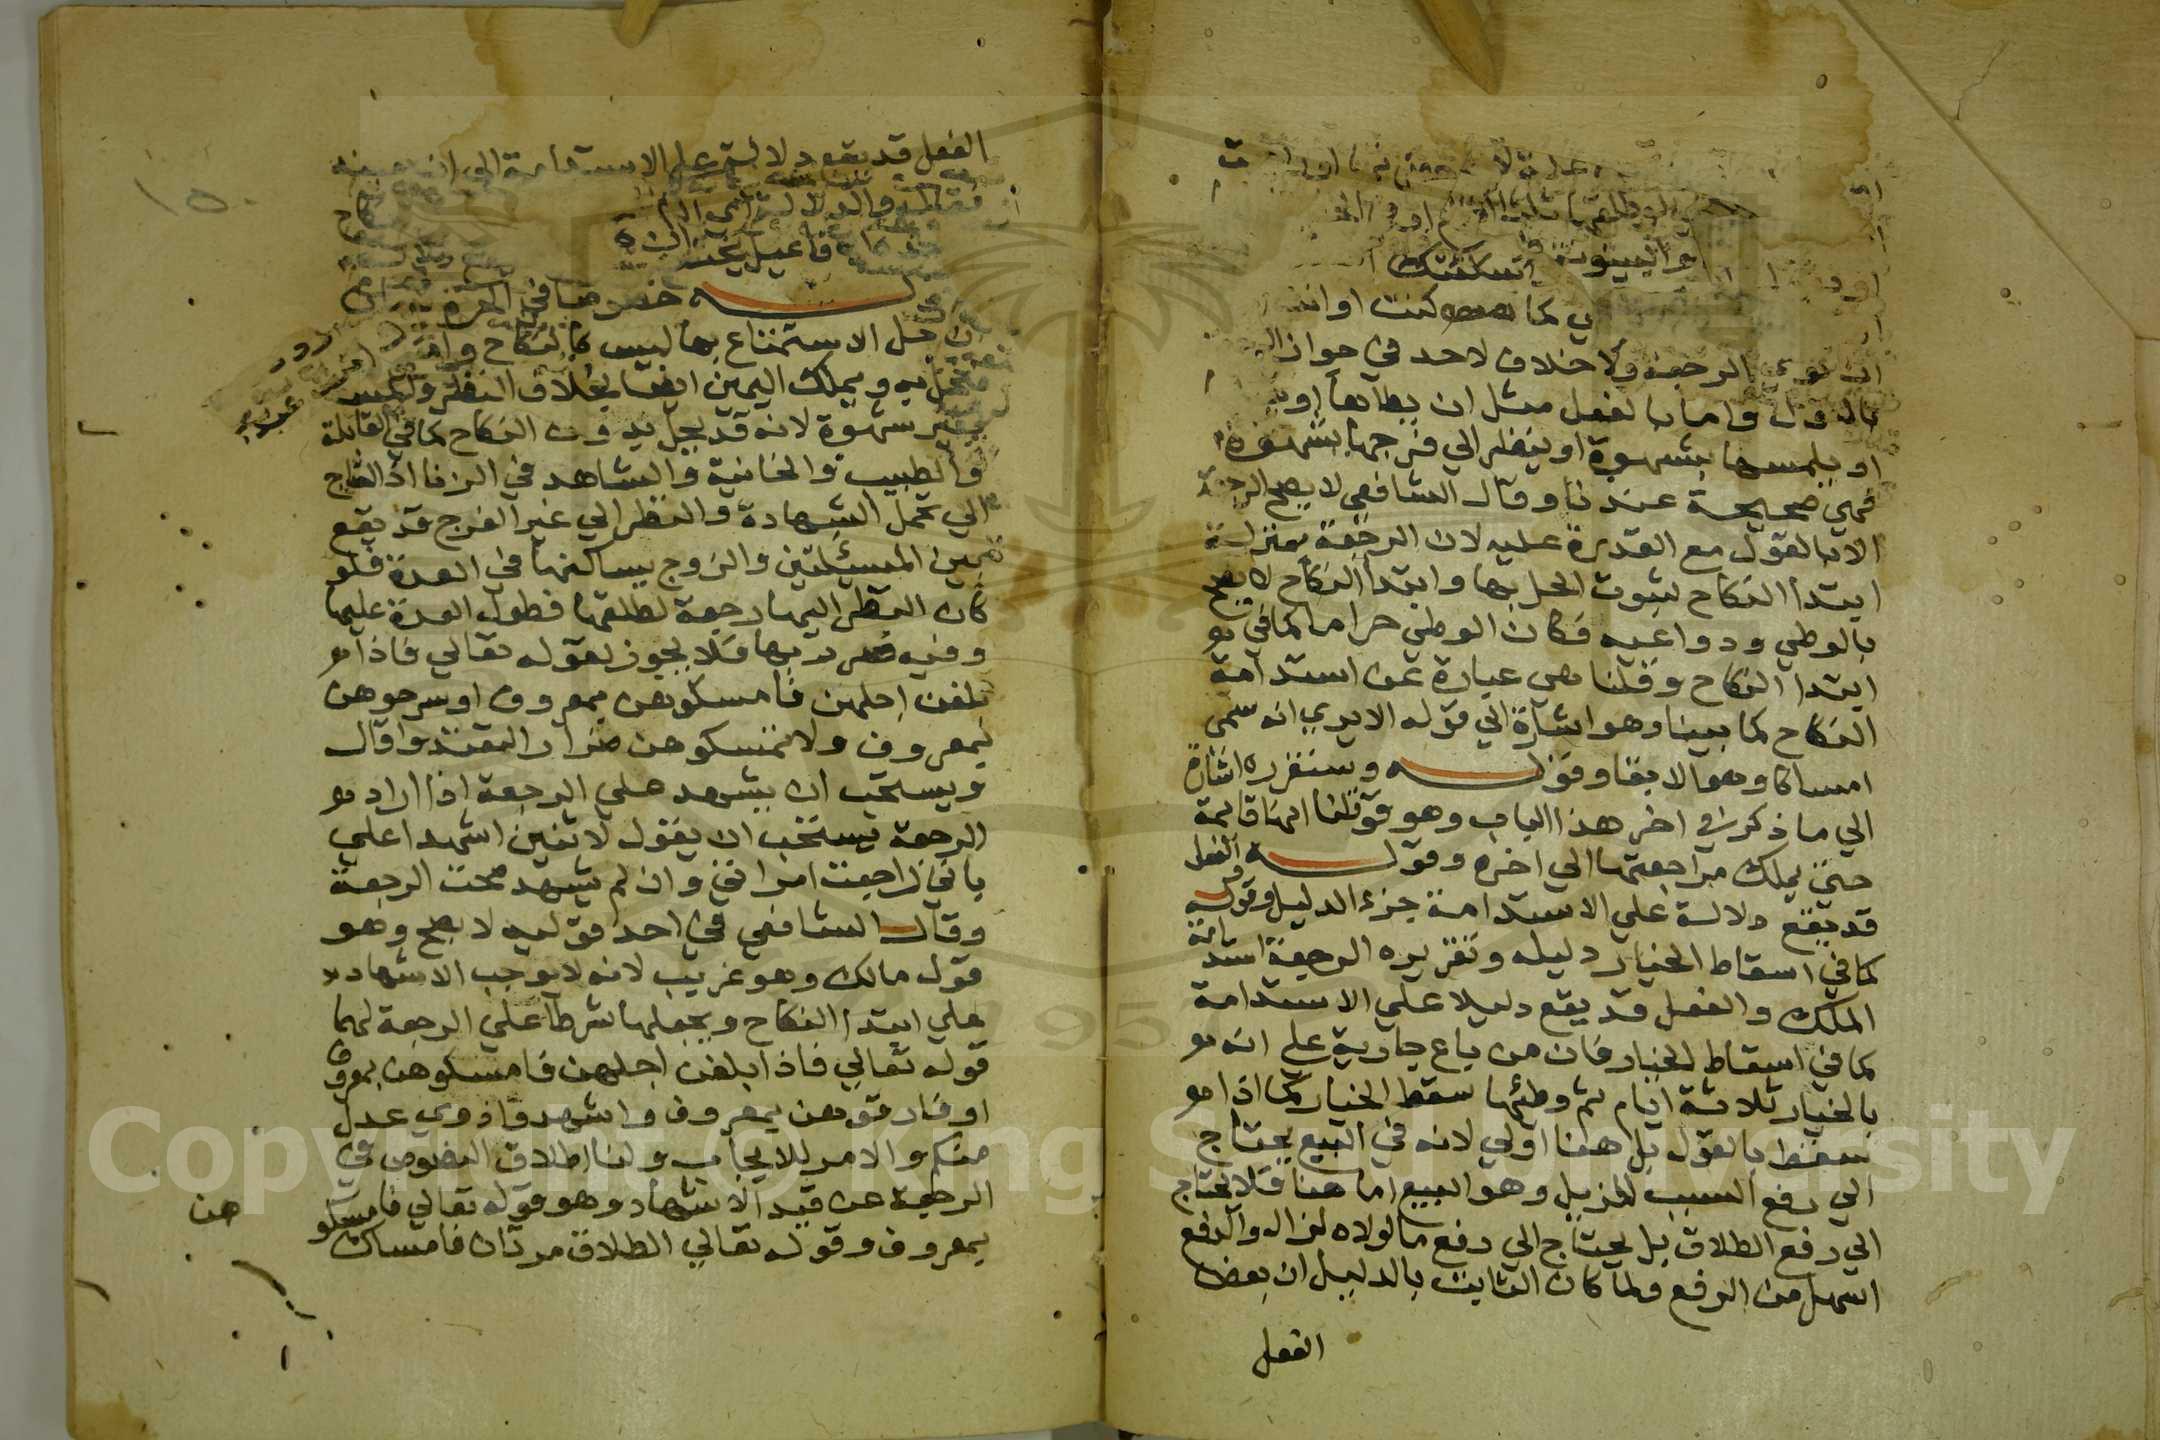 والبينونة
امسكتك
كما كنت او انت
الرجعة ولا خلاف لاحد في جواز
بالقول واما بالفعل مثل ان يطاها او
او يلمسها بشهوة او ينظر الي فرجها بشهوة
فهي صحيحة عندنا وقال الشافعي لا يصح الرجعة
الا بالقول مع القدرة عليه لان الرجعة بمنزلة
ابتدا النكاح لثبوت الحل بها وابتدا النكاح لا يصح
بالوطي ودواعيه فكان الوطي حراما كما في
ابتدا النكاح وقلنا هي عبارة عن استدامة
النكاح كما بينا وهو اشارة الي قوله الا يري انه سمي
امساكا وهو الابقا وقوله وسنقرره اشارة
الي ما ذكر في اخر هذا الباب وهو قولنا انها قايمة
حتي يملك مراجعتها الي اخره وقوله والفعل
قد يقع دلالة علي الاستدامة جزء الدليل وقوله
كما في اسقاط الخيار دليله وتقريره الرجعة استدامة
الملك والفعل قد يقع دليلا علي الاستدامة
كما في اسقاط الخيار فان من باع جارية علي انه
بالخيار ثلاثة ايام ثم وطئها سقط الخيار كما اذا
سقط بالقول بل هنا اولي لانه في البيع يحتاج
الي رفع السبب المزيل وهو البيع اما هنا فلا يحتاج
الي رفع الطلاق بل يحتاج الي دفع ما لولاه لزال والدفع
اسهل من الرفع ولما كان الثابت بالدليل ان بعض
الفعل
١٥
الفعل قد يقع دلالة علي الاستدامة الي ان يعينه
فقال والدلالة
فاعيل يختص
خصوصا في الحرة
حل الاستمتاع بها ليس بالنكاح
وبملك اليمين ايضا بخلاف النظر والمس
بغير شهوة لانه قد يحل بدون النكاح كما في القابلة
والطبيب والخاتنة والشاهد في الزنا اذا احتاج
الي تحمل الشهادة والنظر الي غير الفرج قد يقع
بين المسئلتين والزوج يساكنها في العدة فلو
كان النظر اليها رجعة لطلقها فطول العدة عليها
وفيه ضرر بها فلا يجوز لقوله تعالي فاذا
بلغن اجلهن فامسكوهن بمعروف او سرحوهن
بمعروف ولا تمسكوهن ضرارا لتعتدوا قال
ويستحب ان يشهد علي الرجعة اذا اراد
الرجعة يستحب ان يقول لاثنين اشهدا علي
باني راجعت امراتي وان لم يشهد صحت الرجعة
وقال الشافعي في احد قوليه لا يصح وهو
قول مالك وهو غريب لانه لا يوجب الاشهاد
علي ابتدا النكاح ويجعلها شرطا علي الرجعة لهما
قوله تعالي فاذا بلغن اجلهن فامسكوهن بمعروف
او فارقوهن بمعروف واشهدوا ذوي عدل
منكم والامر للايجاب ولنا اطلاق النصوص في
الرجعة عن قيد الاشهاد وهو قوله تعالي فامسكو
هن
بمعروف وقوله تعالي الطلاق مرتان فامساك
Copyright © King Saud University